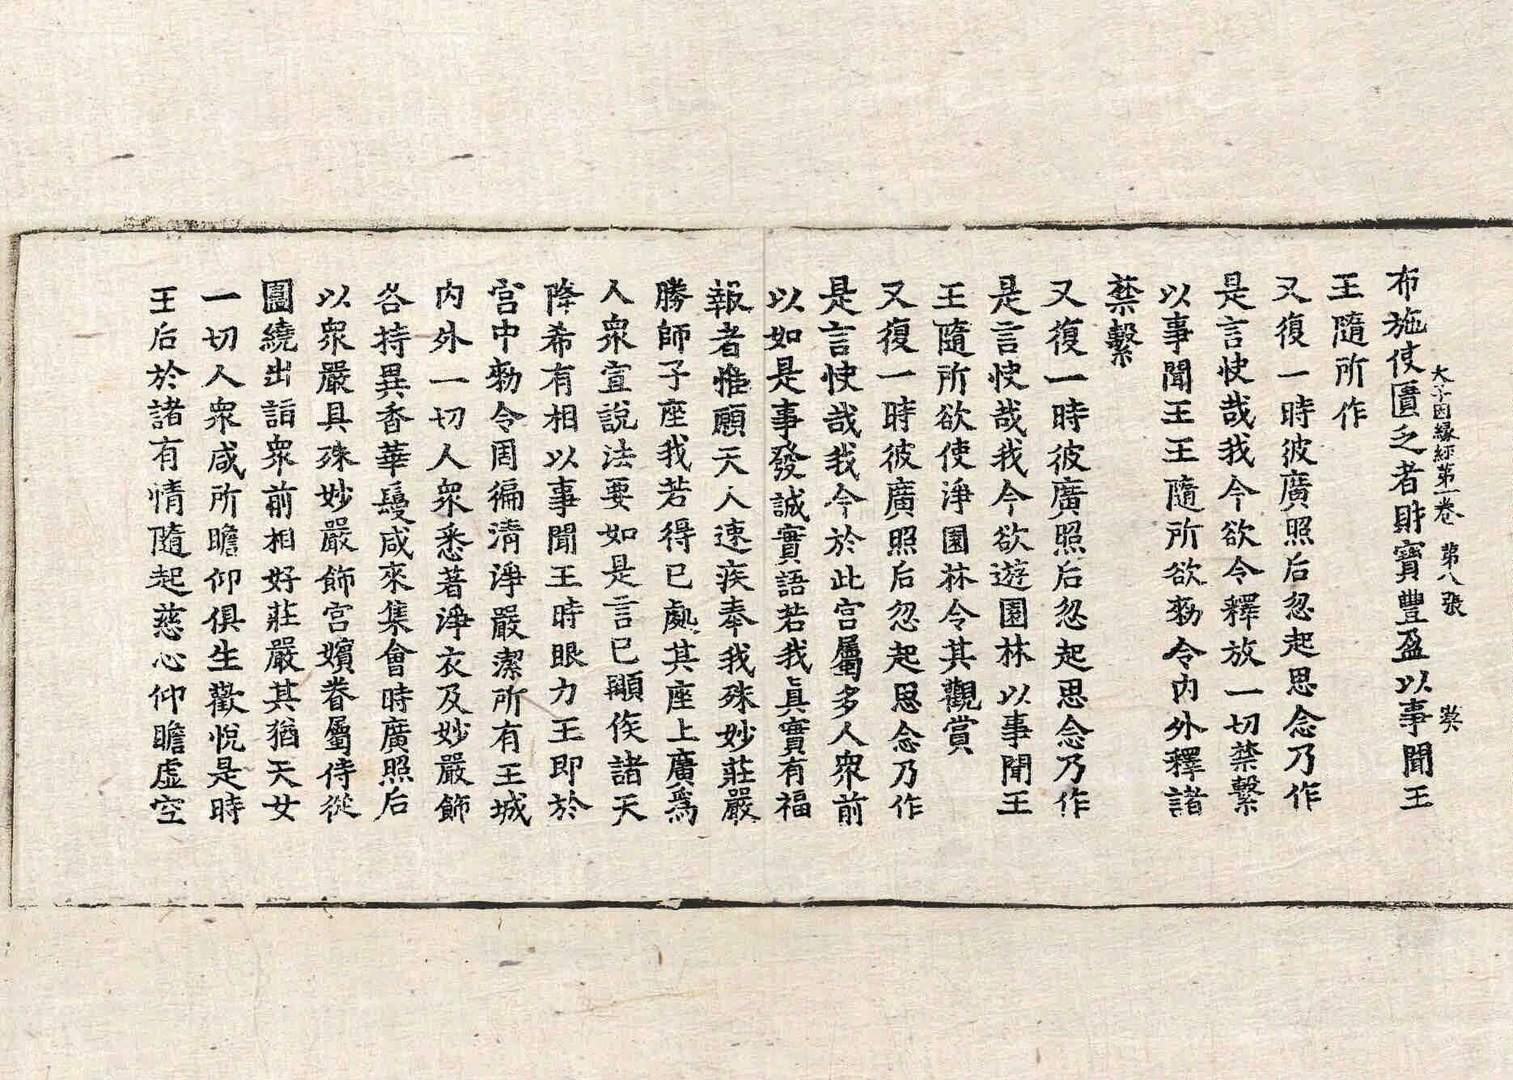 大子因緣經第一卷　第八張　癸
布施使匱乏者財寶豐盈以事聞王
王隨所作
又復一時彼廣照后忽起思念乃作
是言快哉我今欲令釋放一切禁繫
以事聞王王隨所欲勑令内外釋諸
禁繫
又復一時彼廣照后忽起思念乃作
是言快哉我今欲遊園林以事聞王
王隨所欲使淨園林令其觀賞
又復一時彼廣照后忽起思念乃作
是言快哉我今於此宫屬多人衆前
以如是事發誠實語若我真實有福
報者惟願天人速疾奉我殊妙莊嚴
勝師子座我若得已處其座上廣爲
人衆宣說法要如是言已顯俟諸天
降希有相以事聞王時眼力王即於
宫中勑令周徧清淨嚴潔所有王城
内外一切人衆悉著淨衣及妙嚴飾
各持異香華鬘咸來集會時廣照后
以衆嚴具殊妙嚴飾宫嬪眷屬侍從
圍繞出詣衆前相好莊嚴其猶天女
一切人衆咸所瞻仰俱生歡悅是時
王后於諸有情隨起慈心仰瞻虛空